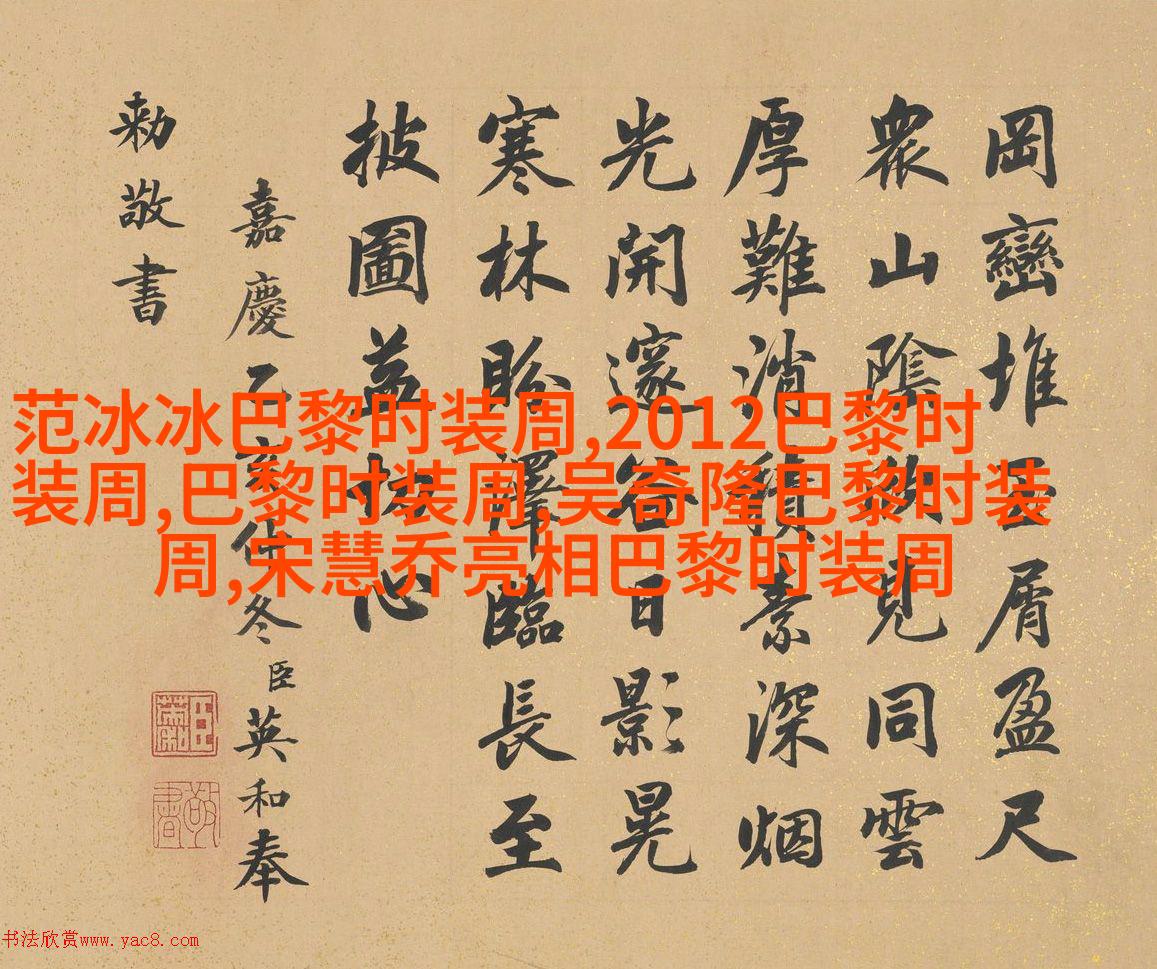 岡巒堆玉屑盈尺
衆山陰見同雲
厚難消積素深烟
光開邃谷日影晃
寒林盼澤臨長至
披圖益切心
嘉慶乙亥仲冬臣英和奉
勅敬書
范冰冰巴黎时装周,2012巴黎时
装周,巴黎时装周,吴奇隆巴黎时装
周,宋慧乔亮相巴黎时装周
敬書
书法欣赏www.yac8.com